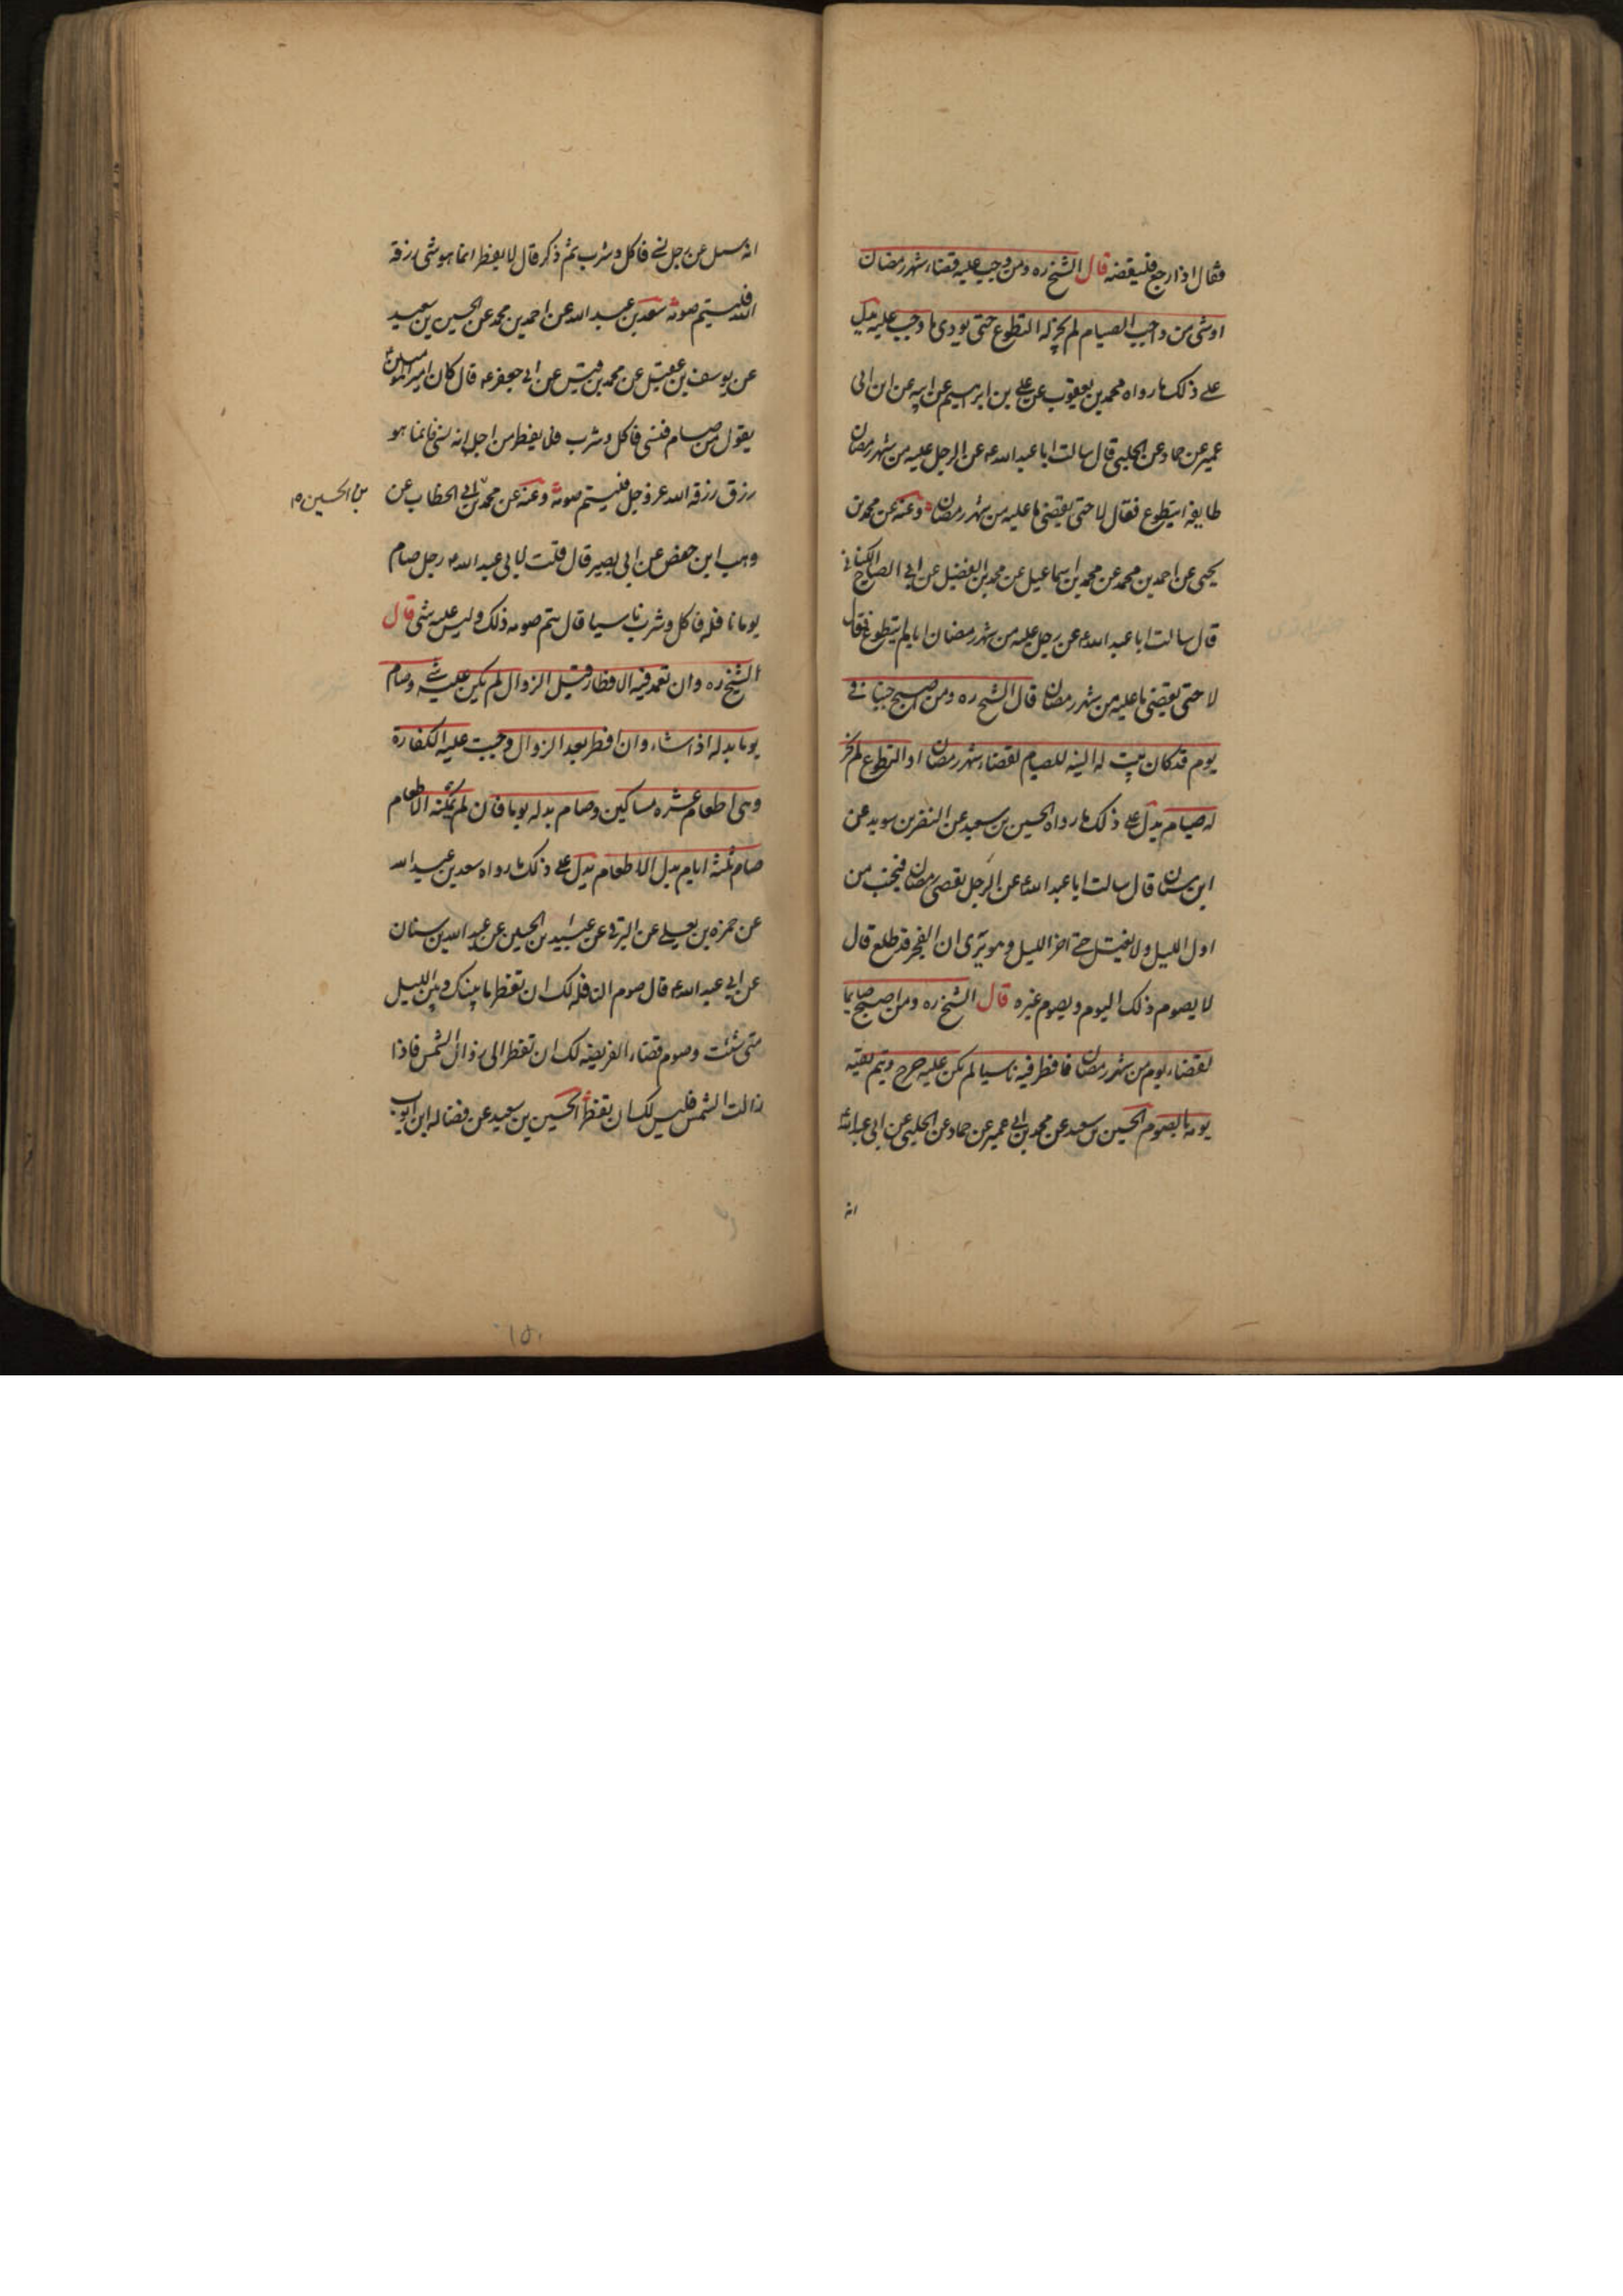 فقال اذا رجع فليقضه قال الشيخ ره ومن وجب عليه قضاء شهر رمضان
او شى من واجب الصيام لم يجز له التطوع حتى يودى ما وجب عليه يدل
على ذلك ما رواه محمد بن يعقوب عن على بن ابرهيم عن ابيه عن ابن ابى
عمير عن حماد عن الحلبى قال سالت ابا عبد الله ع عن الرجل عليه من شهر رمضان
طايفة ايتطوع فقال لا حتى يقضى ما عليه من شهر رمضان وعنه عن محمد بن
يحيى عن احمد بن محمد عن محمد بن اسماعيل عن محمد بن الفضيل عن ابى الصباح الكنانى
قال سالت ابا عبد الله ع عن رجل عليه من شهر رمضان ايام ايتطوع فقال
لا حتى يقضى ما عليه من شهر رمضان قال الشيخ ره ومن اصبح جنبا فى
يوم قد كان بيت له النية للصيام لقضاء شهر رمضان او التطوع لم يجز
له صيام يدل على ذلك ما رواه الحسين بن سعيد عن النضر بن سويد عن
ابن سنان قال سالت ابا عبد الله ع عن الرجل يقضى رمضان فيجنب من
اول الليل ولا يغتسل حتى اخر الليل وهو يرى ان الفجر قد طلع قال
لا يصوم ذلك اليوم ويصوم غيره قال الشيخ ره ومن اصبح صايما
لقضاء يوم من شهر رمضان فافطر فيه ناسيا لم يكن عليه حرج ويتم بقية
يومه بالصوم الحسين بن سعيد عن محمد بن ابى عمير عن حماد عن الحلبى عن ابى عبد الله ع
انه
انه سىل عن رجل نسى فاكل وشرب ثم ذكر قال لا يفطر انما هو شى رزقه
الله فليتم صومه سعد بن عبد الله عن احمد بن محمد عن الحسين بن سعيد
عن يوسف بن عقيل عن محمد بن قيس عن ابى جعفر ع قال كان امير المومنين ع
يقول من صام فنسى فاكل وشرب فلا يفطر من اجل انه نسى فانما هو
رزق رزقه الله عز وجل فليتم صومه وعنه عن محمد بن ابى الخطاب عن
بن الحسين م
وهيب ابن حفص عن ابى بصير قال قلت لابى عبد الله ع رجل صام
يوما نافلة فاكل وشرب ناسيا قال يتم صومه ذلك وليس عليه شى قال
الشيخ ره وان تعمد فيه الافطار قبل الزوال لم يكن عليه شى وصام
يوما بدله اذا شاء وان افطر بعد الزوال وجبت عليه الكفارة
وهى اطعام عشرة مساكين وصام بدله يوما فان لم يمكنه الاطعام
صام ثلثة ايام بدل الاطعام يدل على ذلك ما رواه سعد بن عبد الله
عن حمزه بن يعلى عن البرقى عن عبيد بن الحسين عن عبد الله بن سنان
عن ابى عبد الله ع قال صوم النافلة لك ان تفطر ما بينك وبين الليل
متى شئت وصوم قضاء الفريضة لك ان تفطر الى زوال الشمس فاذا
زالت الشمس فليس لك ان تفطر الحسين بن سعيد عن فضالة ابن ايوب
١٥٠